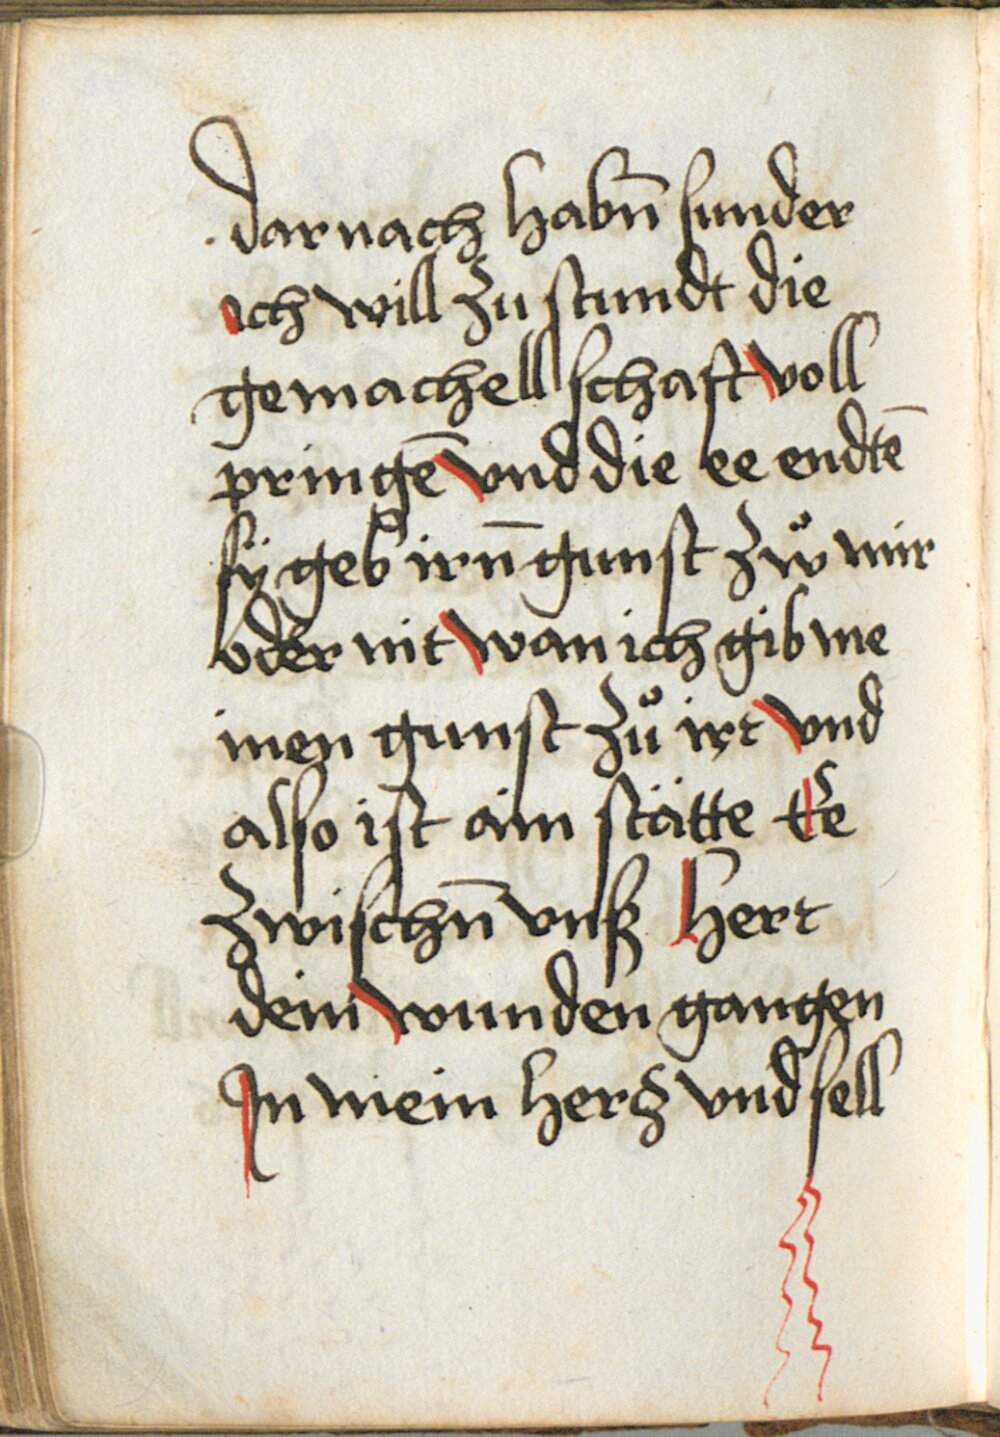 darnach habn̄ sunder
ich will zu stundt die
gemachell schaft voll
pringē vnd die ee endtē
sÿ geb irn̄ gunst zwͦ mir
oder nit wan ich gib me
inen gunst zuͦ irt vnd
also ist ain stätte Ee
zwischn̄ vnß Hert
dein wunden gangen
In mein hertz vnd sell